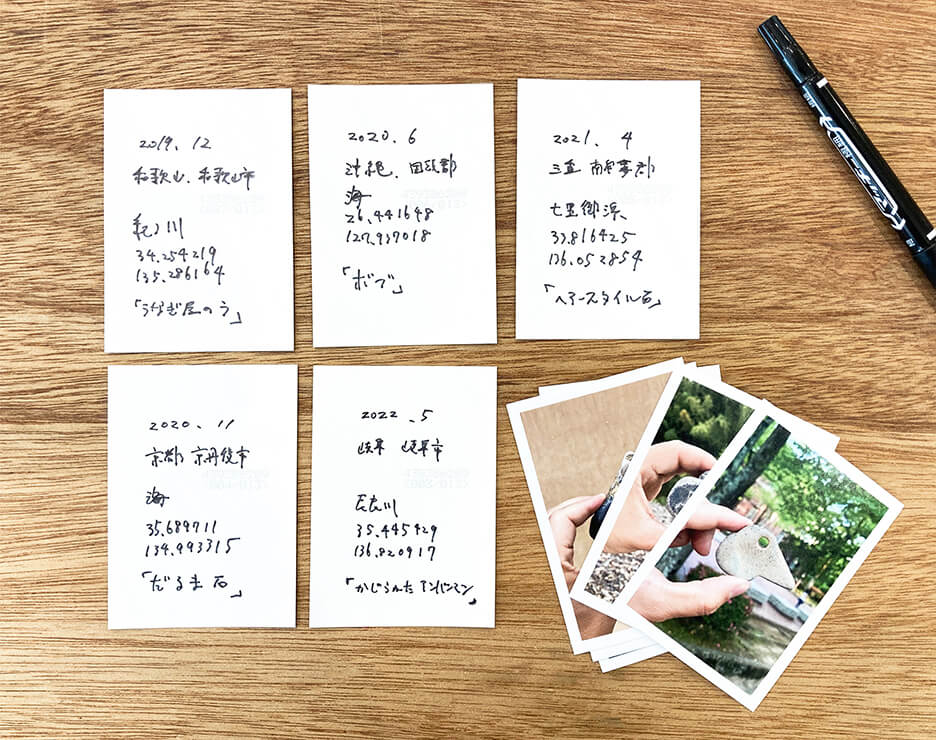 2019. 12
和歌山、和歌山市
紀ノ川
34.254219
135.286164
「うなぎ屋のう」
2020. 6
沖縄、国頭郡
海
26.441648
127.937018
「ボブ」
2021. 4
三重 南牟婁郡
七里御浜
33.816425
136.052854
「ヘアースタイル石」
2020. 11
京都 京丹後市
海
35.689711
134.993315
「だるま石」
2022. 5
岐阜 岐阜市
長良川
35.445429
136.820917
「かじられたアンパンマン」